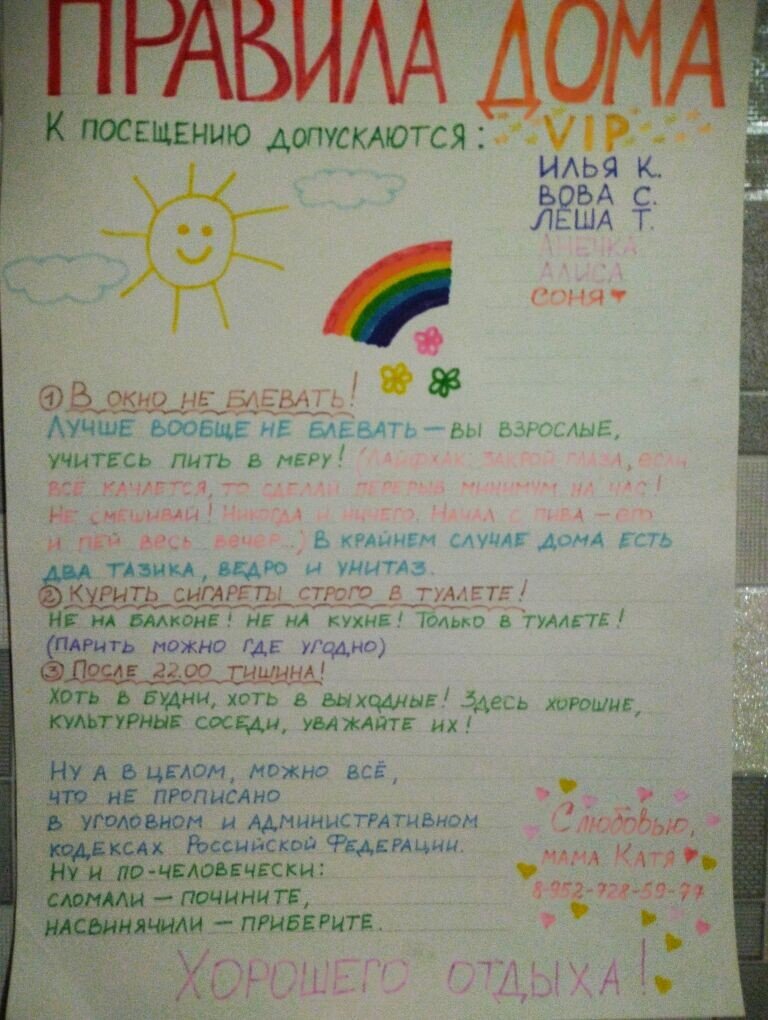 ПРАВИЛА ДОМА
К ПОСЕЩЕНИЮ ДОПУСКАЮТСЯ: VIP
ИЛЬЯ К.
ВОВА С.
ЛЁША Т.
АНЕЧКА
АЛИСА
СОНЯ
① В ОКНО НЕ БЛЕВАТЬ!
ЛУЧШЕ ВООБЩЕ НЕ БЛЕВАТЬ — ВЫ ВЗРОСЛЫЕ,
УЧИТЕСЬ ПИТЬ В МЕРУ! (ЛАЙФХАК: ЗАКРОЙ ГЛАЗА, ЕСЛИ
ВСЁ КАЧАЕТСЯ, ТО СДЕЛАЙ ПЕРЕРЫВ МИНИМУМ НА ЧАС!
НЕ СМЕШИВАЙ! НИКОГДА И НИЧЕГО. НАЧАЛ С ПИВА — ЕГО
И ПЕЙ ВЕСЬ ВЕЧЕР...) В КРАЙНЕМ СЛУЧАЕ ДОМА ЕСТЬ
ДВА ТАЗИКА, ВЕДРО И УНИТАЗ.
② КУРИТЬ СИГАРЕТЫ СТРОГО В ТУАЛЕТЕ!
НЕ НА БАЛКОНЕ! НЕ НА КУХНЕ! ТОЛЬКО В ТУАЛЕТЕ!
(ПАРИТЬ МОЖНО ГДЕ УГОДНО)
③ ПОСЛЕ 22.00 ТИШИНА!
ХОТЬ В БУДНИ, ХОТЬ В ВЫХОДНЫЕ! ЗДЕСЬ ХОРОШИЕ,
КУЛЬТУРНЫЕ СОСЕДИ, УВАЖАЙТЕ ИХ!
НУ А В ЦЕЛОМ, МОЖНО ВСЁ,
ЧТО НЕ ПРОПИСАНО
В УГОЛОВНОМ И АДМИНИСТРАТИВНОМ
КОДЕКСАХ РОССИЙСКОЙ ФЕДЕРАЦИИ.
НУ И ПО-ЧЕЛОВЕЧЕСКИ:
СЛОМАЛИ — ПОЧИНИТЕ,
НАСВИНЯЧИЛИ — ПРИБЕРИТЕ.
С любовью,
МАМА КАТЯ
8-952-728-59-77
ХОРОШЕГО ОТДЫХА!